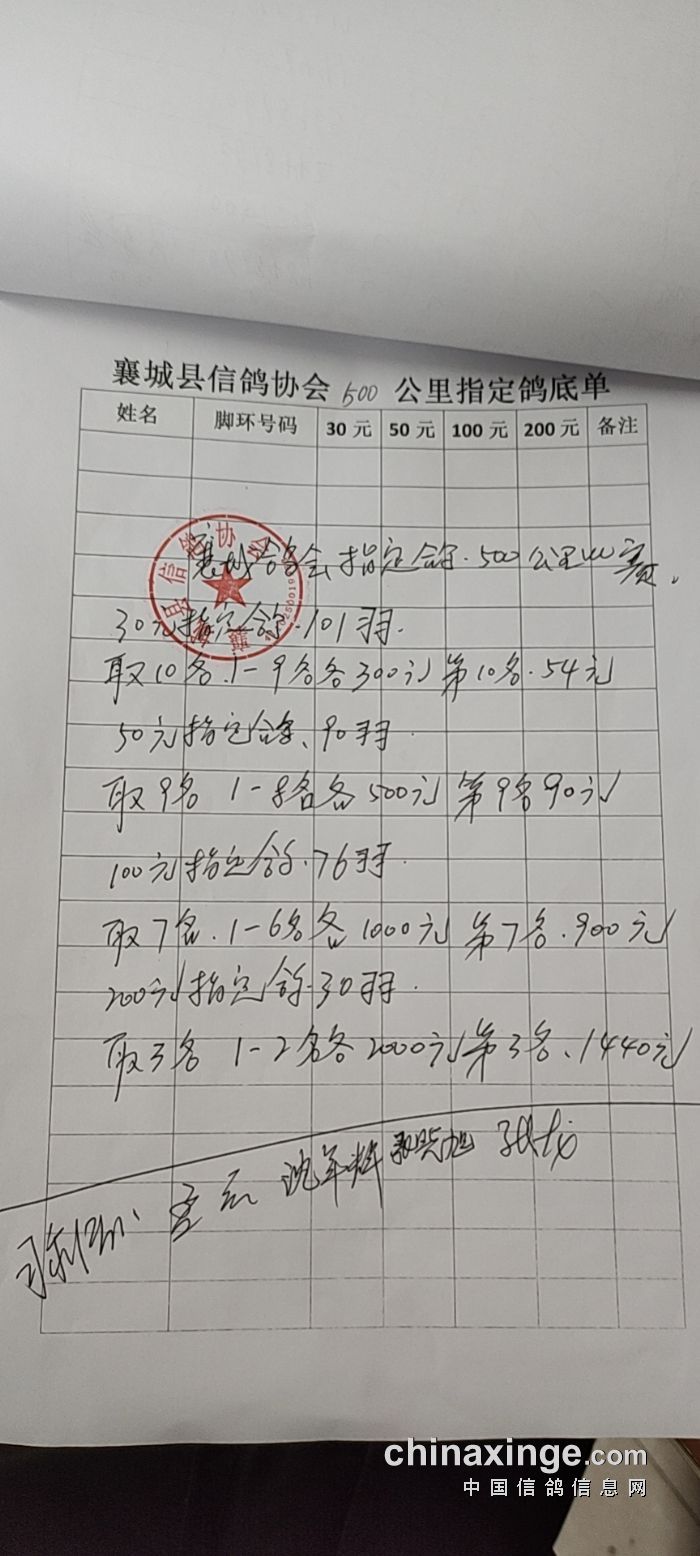 襄城县信鸽协会 500 公里指定鸽底单
姓名 脚环号码 30元 50元 100元 200元 备注
襄城鸽会指定鸽.500公里
30元指定鸽.101羽.
取10名.1-9名各300元第10名.54元
50元指定鸽、90羽.
取9名 1-8名各500元第9名90元
100元指定鸽.76羽.
取7名.1-6名各1000元第7名.900元
200元指定鸽.30羽.
取3名 1-2名各2000元第3名、1440元
chinaxinge.com
中国信鸽信息网